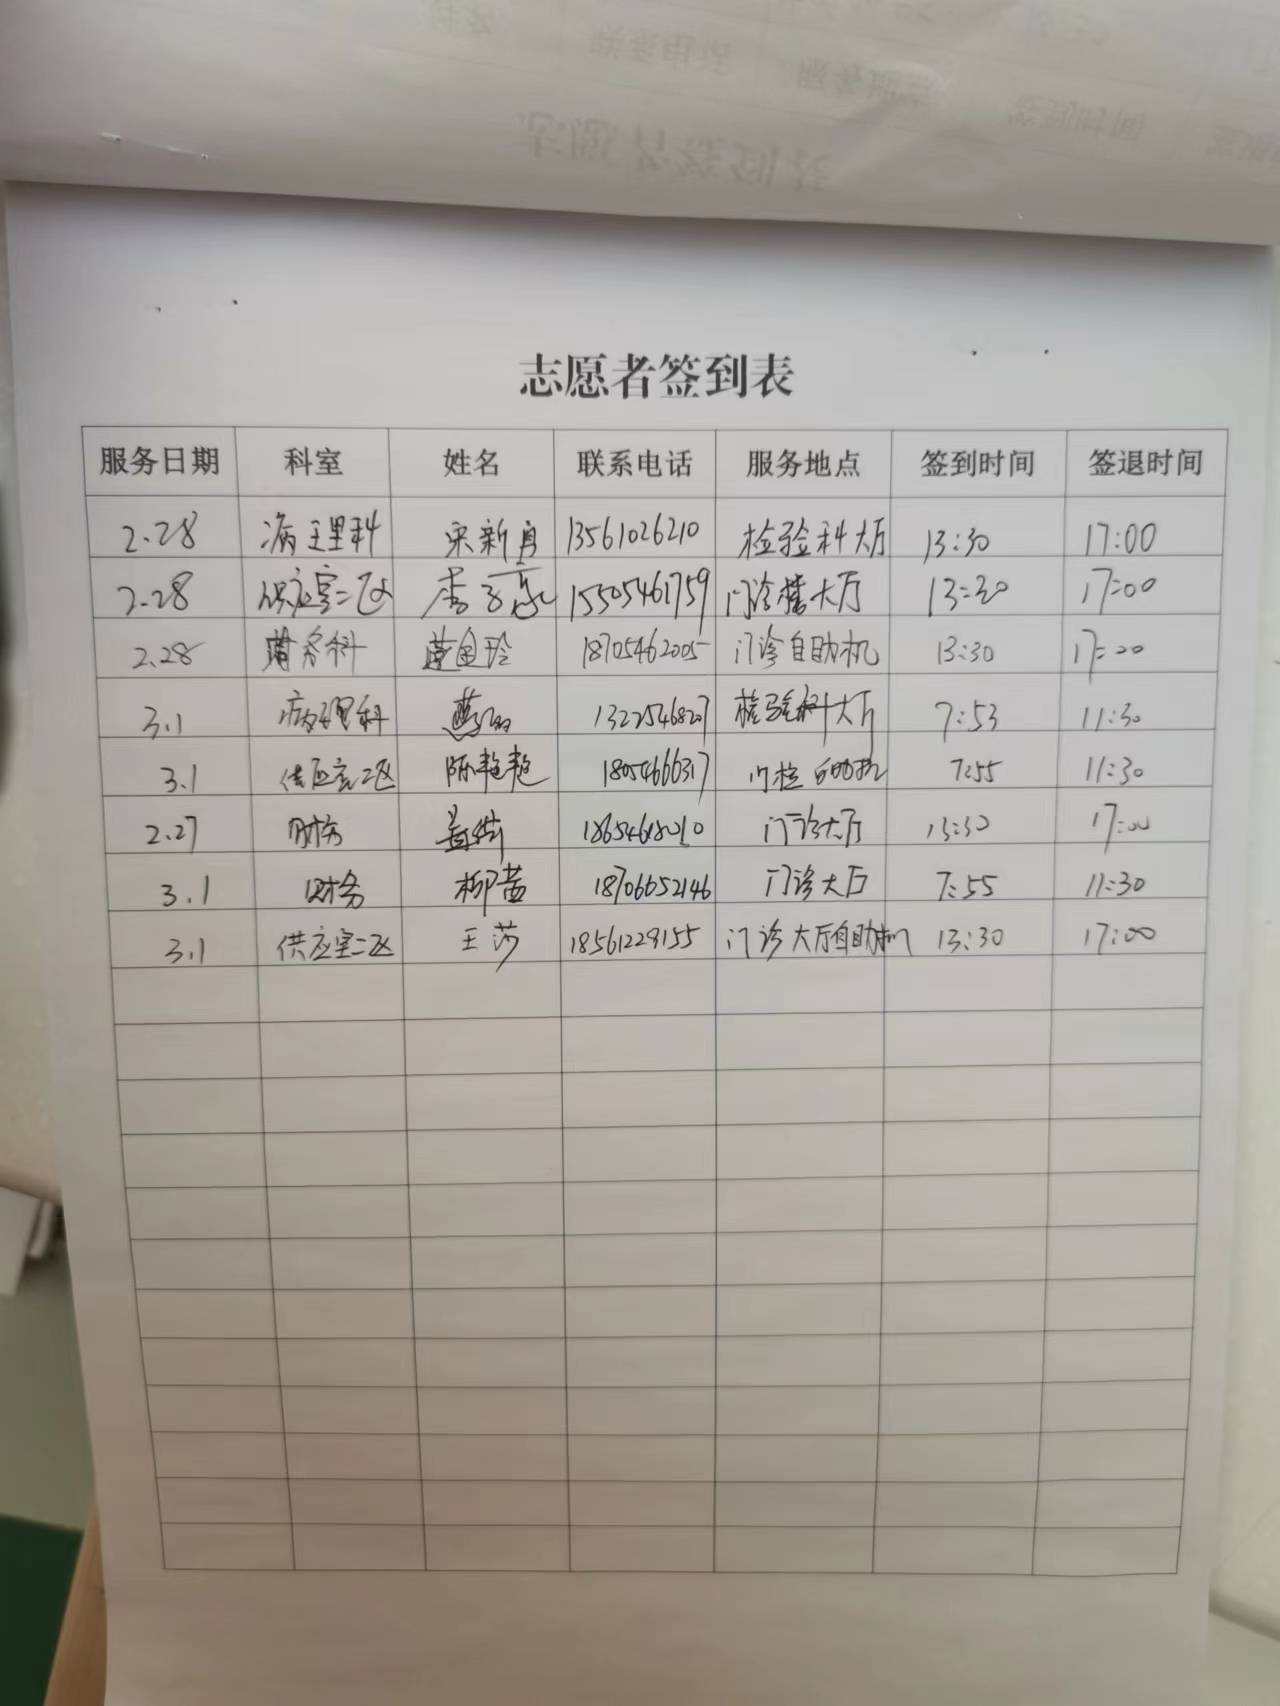 志愿者签到表
服务日期 科室 姓名 联系电话 服务地点 签到时间 签退时间
2.28 病理科 宋新 13561026210 检验科大厅 13:30 17:00
2.28 供应室二区 李 15505461759 门诊楼大厅 13:30 17:00
2.28 科 金玲 18705462005 门诊自助机 13:30 17:00
3.1 病理科 13225468207 检验科大厅 7:53 11:30
3.1 供应室二区 陈艳艳 18054666317 门诊自助机 7:55 11:30
2.27 财务 18654618010 门诊大厅 13:30 17:00
3.1 财务 柳茜 18706652146 门诊大厅 7:55 11:30
3.1 供应室二区 王莎 18561229155 门诊大厅自助机 13:30 17:00